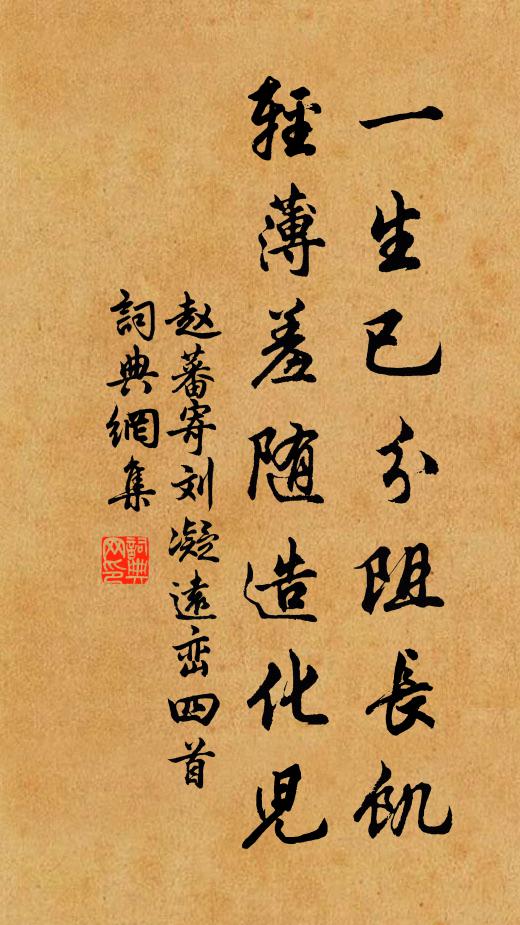 一生已分阻長飢
輕薄羞随造化児
赵蕃寄刘凝遠峦四首
詞典網集
詞典网印